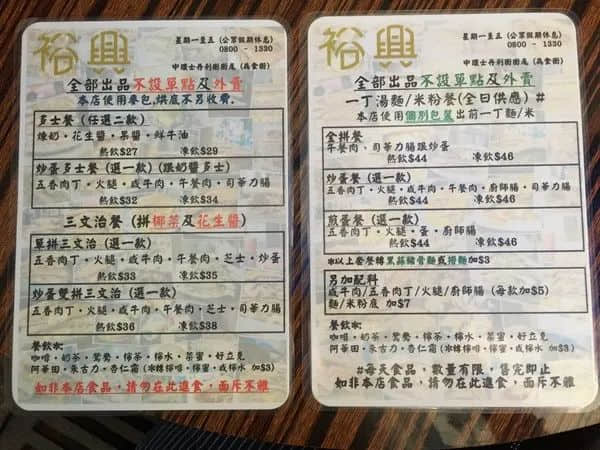 裕興
星期一至五 (公眾假期休息)
0800 - 1330
中環士丹利街街尾 (為食街)
全部出品不設單點及外賣
本店使用麥包,烘底不另收費.
多士餐 (任選二款)
煉奶·花生醬·果醬·鮮牛油
熱飲$27 凍飲$29
炒蛋多士餐 (選一款) (跟奶醬多士)
五香肉丁·火腿·咸牛肉·午餐肉·司華力腸
熱飲$32 凍飲$34
三文治餐 (拼椰菜及花生醬)
單拼三文治 (選一款)
五香肉丁·火腿·咸牛肉·午餐肉·芝士·炒蛋
熱飲$33 凍飲$35
炒蛋雙拼三文治 (選一款)
五香肉丁·火腿·咸牛肉·午餐肉·芝士·司華力腸
熱飲$36 凍飲$38
餐飲:
咖啡·奶茶·鴛鴦·檸茶·檸水·菜蜜·好立克
阿華田·朱古力·杏仁霜 (冰轉檸啡·檸蜜·或檸水 加$3)
如非本店食品,請勿在此進食,面斥不雅
裕興
星期一至五 (公眾假期休息)
0800 - 1330
中環士丹利街街尾 (為食街)
全部出品不設單點及外賣
一丁湯麵/米粉餐(全日供應) #
本店使用個別包裝出前一丁麵/米
全拼餐
午餐肉、司華力腸跟炒蛋
熱飲$44 凍飲$46
炒蛋餐 (選一款)
五香肉丁·火腿·咸牛肉·午餐肉·廚師腸·司華力腸
熱飲$44 凍飲$46
煎蛋餐 (選一款)
五香肉丁·火腿·蛋·廚師腸
熱飲$44 凍飲$46
※以上套餐轉黑蒜豬骨麵或撈麵加$3
另加配料
咸牛肉/五香肉丁/火腿/廚師腸 (每款加$5)
麵/米粉底 加$7
餐飲:
咖啡·奶茶·鴛鴦·檸茶·檸水·菜蜜·好立克
阿華田·朱古力·杏仁霜 (冰轉檸啡·檸蜜·或檸水 加$3)
#每天食品,數量有限,售完即止
如非本店食品,請勿在此進食,面斥不雅